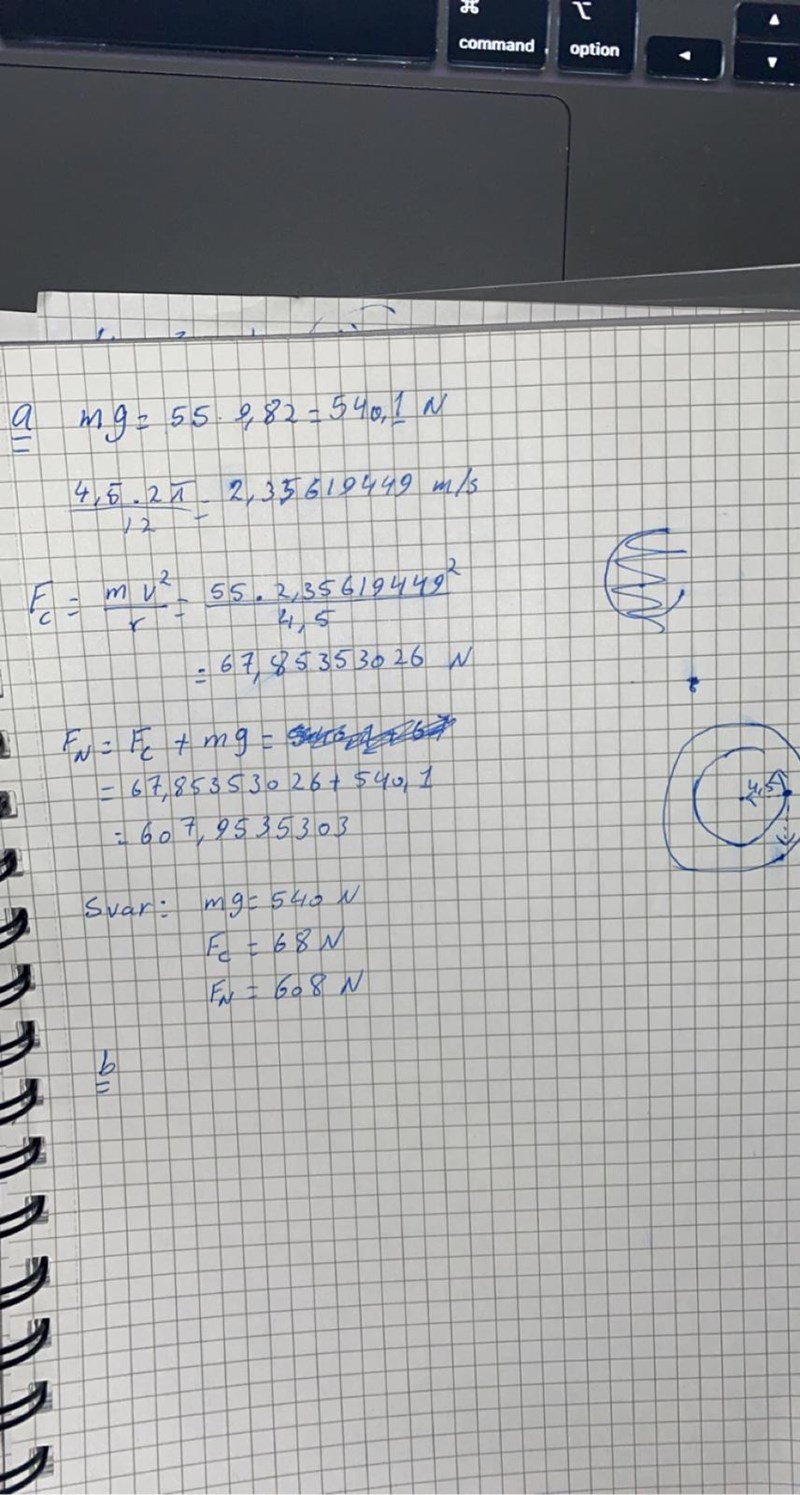 ⌘
command
⌥
option
◄
▲
▼
a mg = 55 · 9,82 = 540,1 N
4,5 · 2π / 12 = 2,35619449 m/s
Fc = mv² / r = 55 · 2,35619449² / 4,5
= 67,85353026 N
FN = Fc + mg =
= 67,85353026 + 540,1
= 607,9535303
4,5
Svar: mg = 540 N
Fc = 68 N
FN = 608 N
b